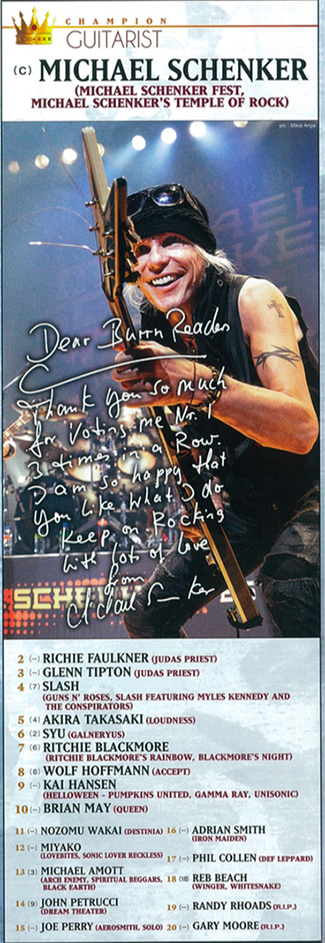 CHAMPION
GUITARIST
(C) MICHAEL SCHENKER
(MICHAEL SCHENKER FEST,
MICHAEL SCHENKER'S TEMPLE OF ROCK)
pic : Mikio Ariga
Dear Burrn Readers
Thank you so much
for Voting me Nr. 1
3 times in a Row.
I am so happy that
you like what I do
Keep on Rocking
with lots of Love
from
SCHENKER
2 (–) RICHIE FAULKNER (JUDAS PRIEST)
3 (–) GLENN TIPTON (JUDAS PRIEST)
4 (7) SLASH
(GUNS N' ROSES, SLASH FEATURING MYLES KENNEDY AND
THE CONSPIRATORS)
5 (4) AKIRA TAKASAKI (LOUDNESS)
6 (2) SYU (GALNERYUS)
7 (6) RITCHIE BLACKMORE
(RITCHIE BLACKMORE'S RAINBOW, BLACKMORE'S NIGHT)
8 (8) WOLF HOFFMANN (ACCEPT)
9 (–) KAI HANSEN
(HELLOWEEN - PUMPKINS UNITED, GAMMA RAY, UNISONIC)
10 (–) BRIAN MAY (QUEEN)
11 (–) NOZOMU WAKAI (DESTINIA)
12 (–) MIYAKO
(LOVEBITES, SONIC LOVER RECKLESS)
13 (3) MICHAEL AMOTT
(ARCH ENEMY, SPIRITUAL BEGGARS,
BLACK EARTH)
14 (9) JOHN PETRUCCI
(DREAM THEATER)
15 (–) JOE PERRY (AEROSMITH, SOLO)
16 (–) ADRIAN SMITH
(IRON MAIDEN)
17 (–) PHIL COLLEN (DEF LEPPARD)
18 (18) REB BEACH
(WINGER, WHITESNAKE)
19 (–) RANDY RHOADS (R.I.P.)
20 (–) GARY MOORE (R.I.P.)